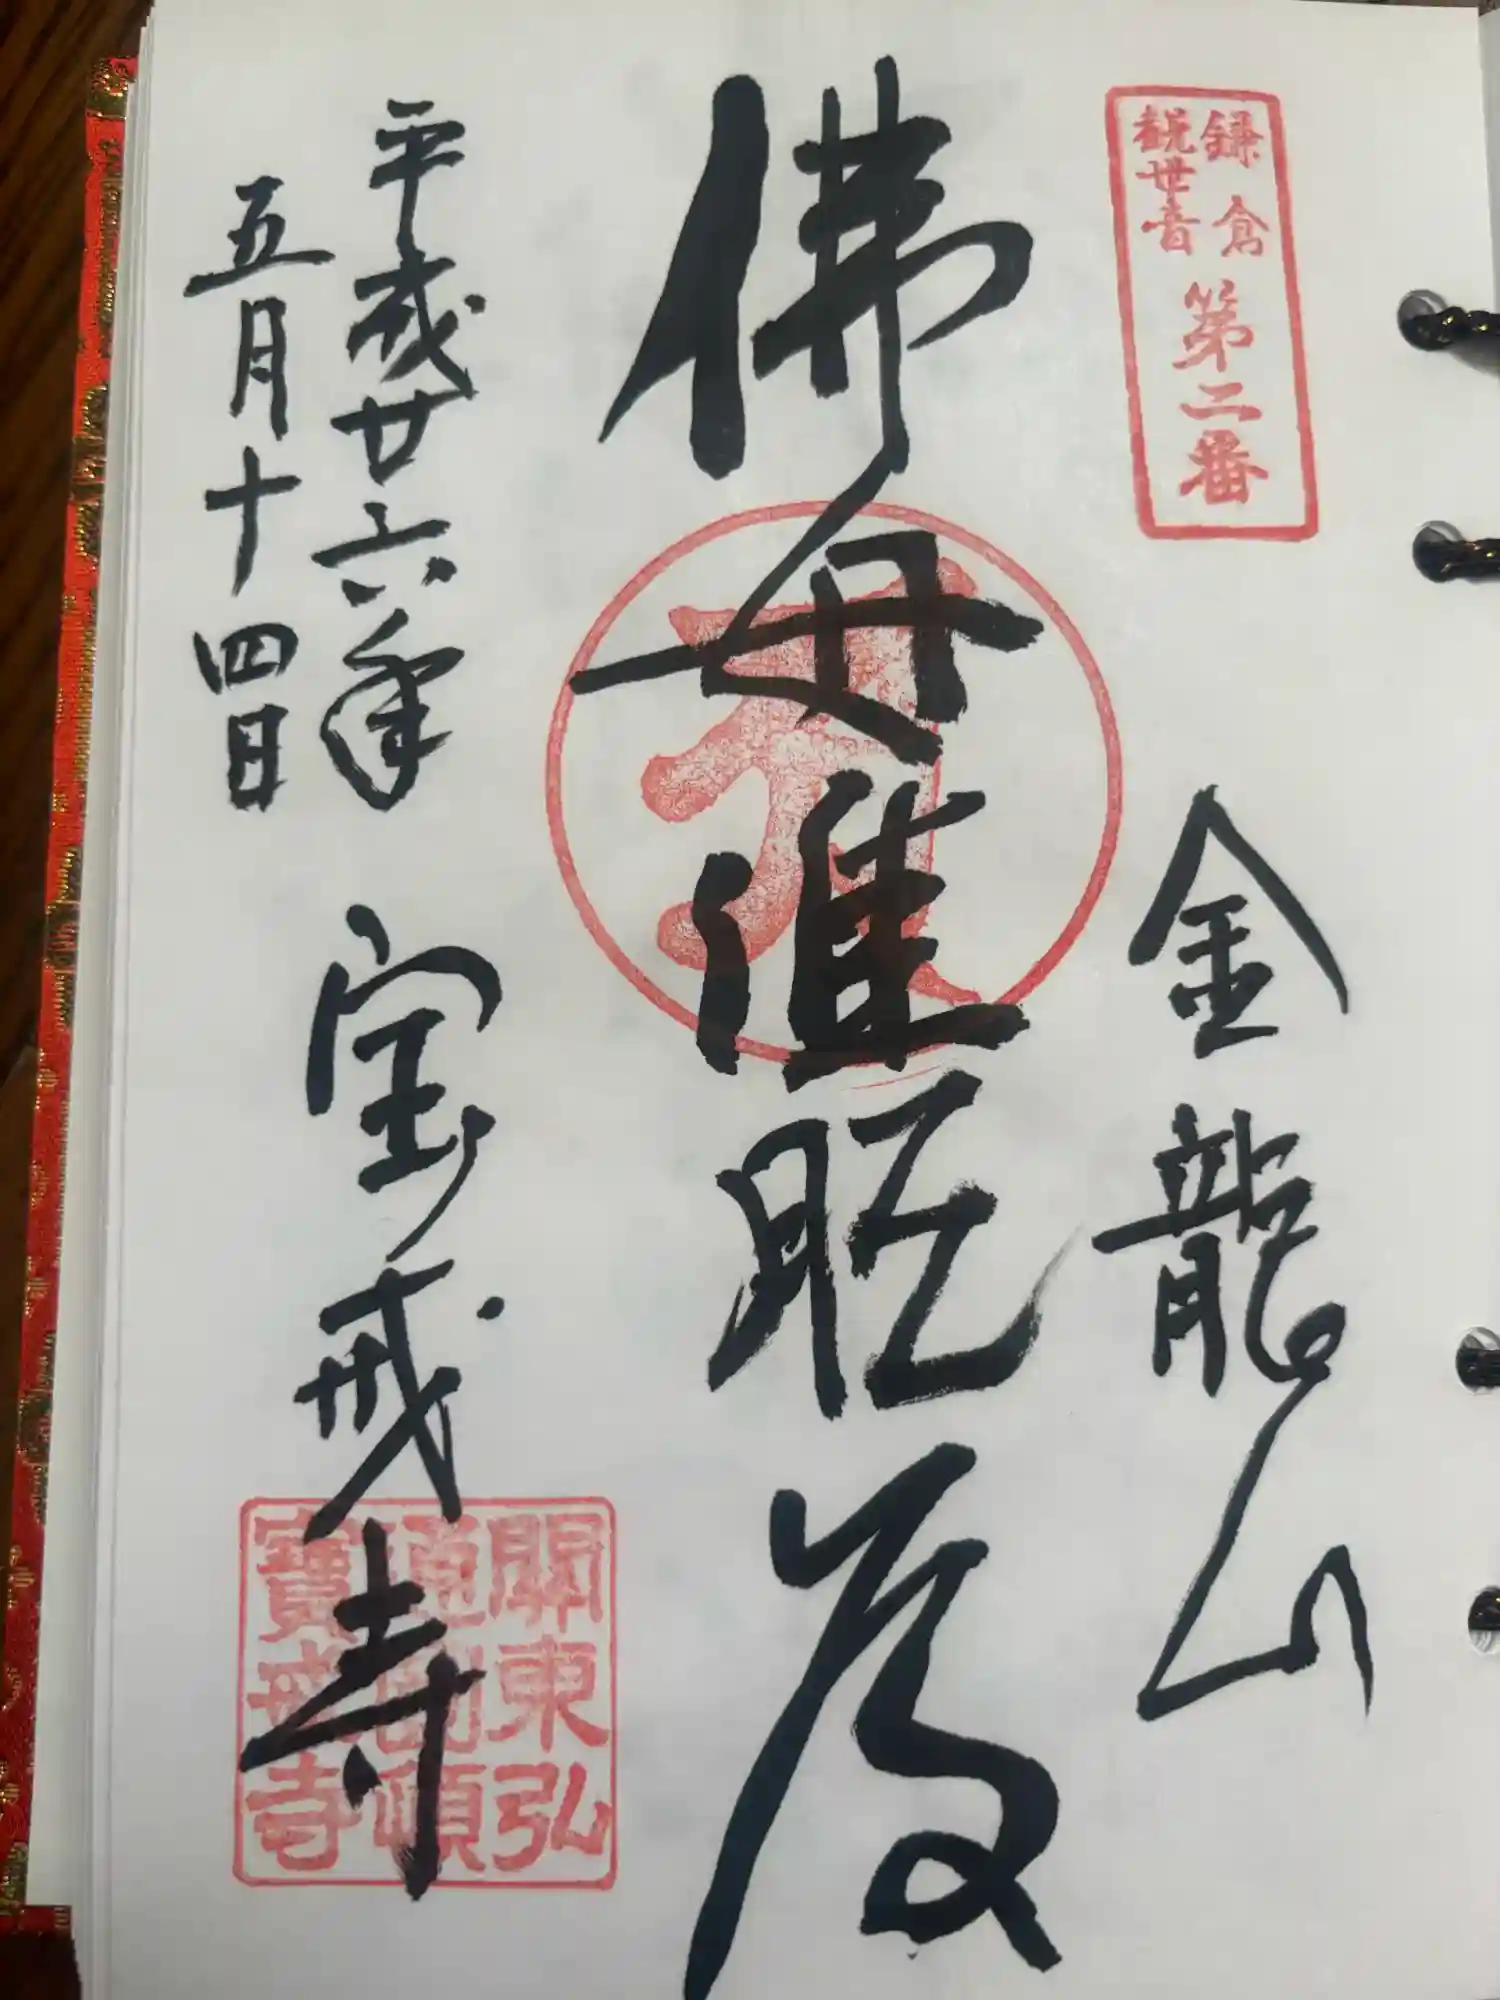 鎌倉
観世音
第二番
金龍山
佛母准胝尊
平成廿六年
五月十四日
宝戒寺
関東弘
通圓頓
寶戒寺